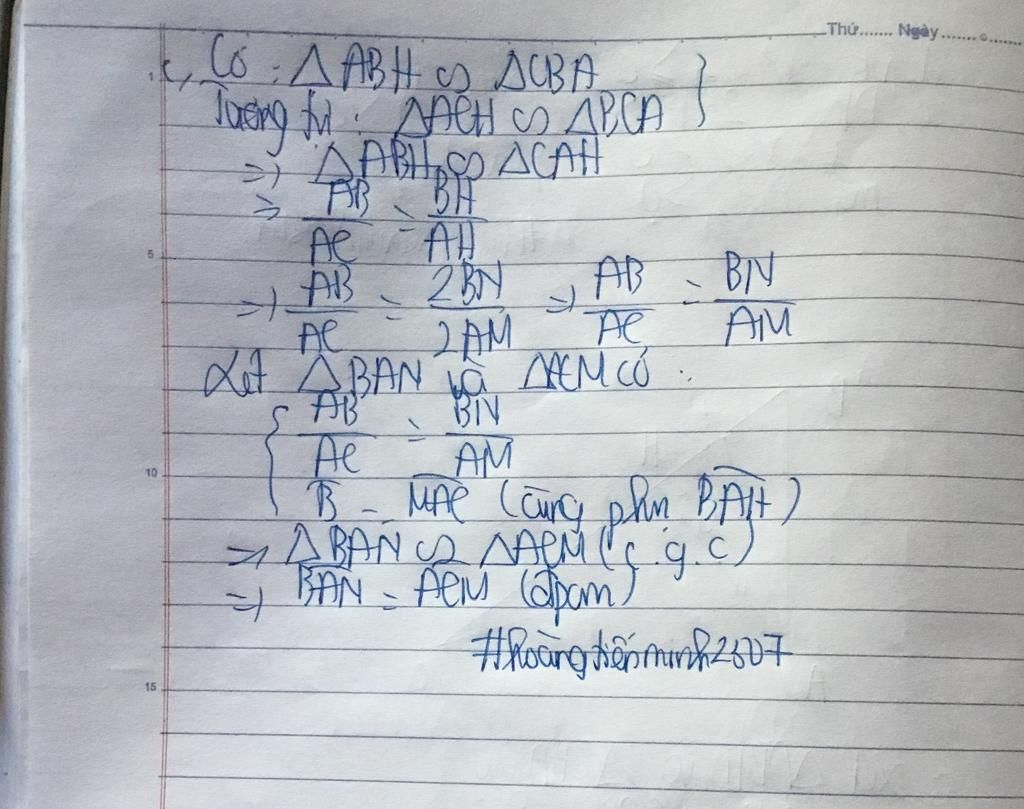 Thứ....... Ngày.......
c, Có : △ABH ∽ △CBA
Tương tự : △ACH ∽ △BCA
=> △ABH ∽ △CAH
=> AB/AC = BH/AH
=> AB/AC = 2BN/2AM => AB/AC = BN/AM
Xét △BAN và △ACM có :
AB/AC = BN/AM
B̂ = MAC (cùng phụ BAH)
=> △BAN ∽ △ACM (c.g.c)
=> BAN = ACM (đpcm)
#hoàngtiếnminh2307
1
5
10
15